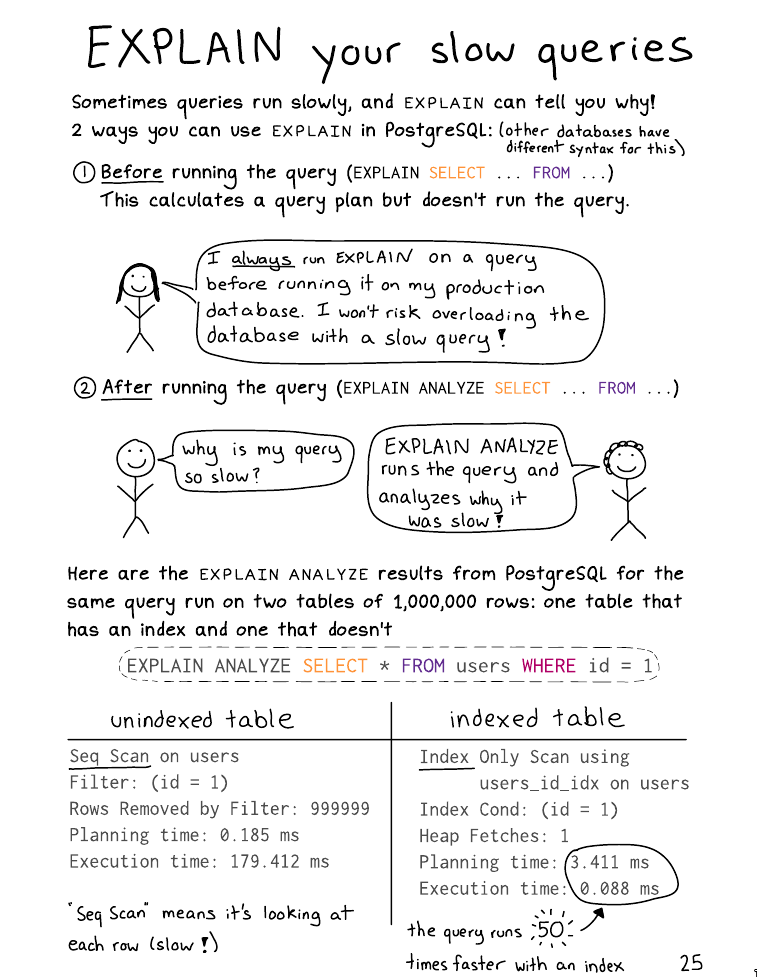 EXPLAIN your slow queries
Sometimes queries run slowly, and EXPLAIN can tell you why!
2 ways you can use EXPLAIN in PostgreSQL: (other databases have
different syntax for this)
① Before running the query (EXPLAIN SELECT ... FROM ...)
This calculates a query plan but doesn't run the query.
I always run EXPLAIN on a query
before running it on my production
database. I won't risk overloading the
database with a slow query!
② After running the query (EXPLAIN ANALYZE SELECT ... FROM ...)
why is my query
so slow?
EXPLAIN ANALYZE
runs the query and
analyzes why it
was slow!
Here are the EXPLAIN ANALYZE results from PostgreSQL for the
same query run on two tables of 1,000,000 rows: one table that
has an index and one that doesn't
EXPLAIN ANALYZE SELECT * FROM users WHERE id = 1
unindexed table
Seq Scan on users
Filter: (id = 1)
Rows Removed by Filter: 999999
Planning time: 0.185 ms
Execution time: 179.412 ms
"Seq Scan" means it's looking at
each row (slow!)
indexed table
Index Only Scan using
users_id_idx on users
Index Cond: (id = 1)
Heap Fetches: 1
Planning time: 3.411 ms
Execution time: 0.088 ms
the query runs 50
times faster with an index
25